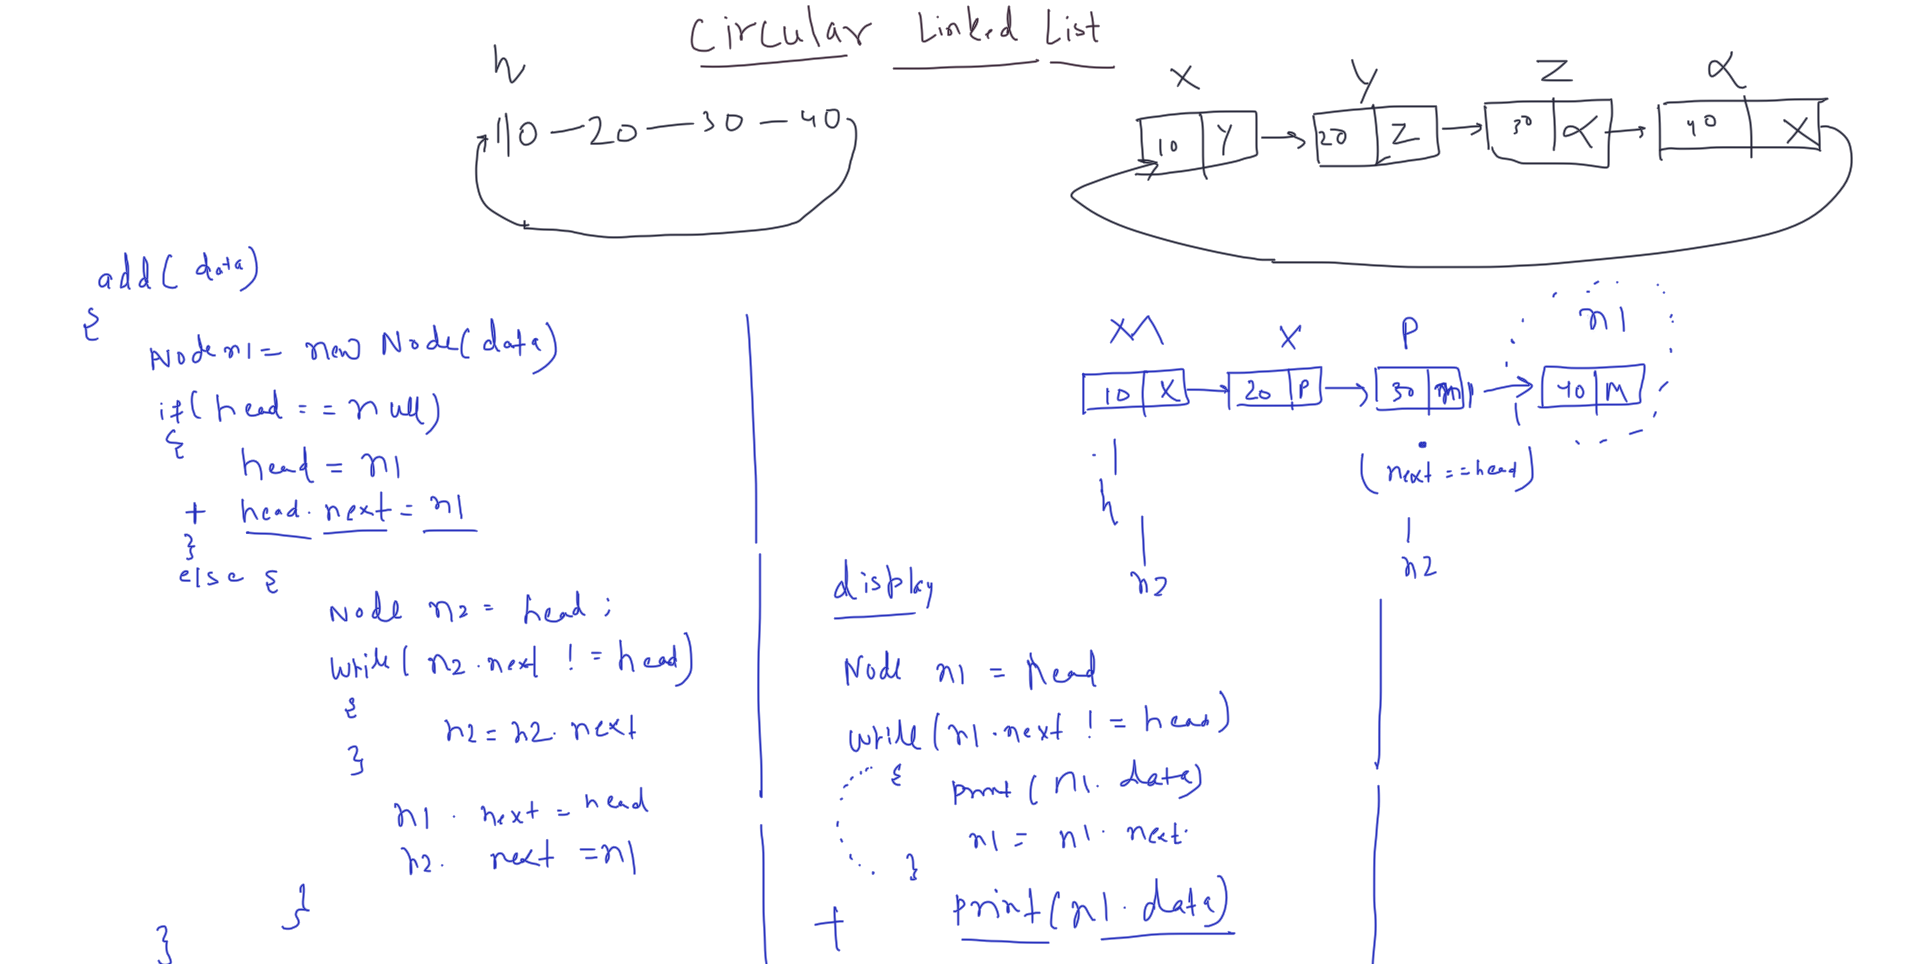 Circular Linked List
h
10 — 20 — 30 — 40
X Y Z α
10 Y 20 Z 30 α 40 X
add( data)
{
Node n1 = new Node( data)
if( head == null)
{
head = n1
+ head. next = n1
}
else {
Node n2 = head ;
while( n2 .next != head)
{
n2 = n2. next
}
n1 . next = head
n2. next = n1
}
}
X P n1
10 X 20 P 30 n1 40 M
h
( next == head)
n2
n2
display
Node n1 = head
while (n1 .next != head)
{
print ( n1. data)
n1 = n1. next.
}
+ print( n1. data)